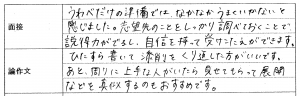 面接
うわべだけの準備では、なかなかうまくいかないと
感じました。志望先のことをしっかり調べておくことで、
説得力がでるし、自信を持って受けこたえができます。
論作文
ひたすら書いて添削をくり返した方がいいです。
あと、周りに上手な人がいたら見せてもらって展開
などを真似するのもおすすめです。